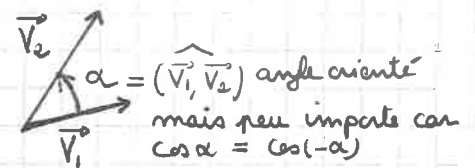 V₂
α = (V₁, V₂) angle orienté
mais peu importe car
V₁ cos α = cos(-α)